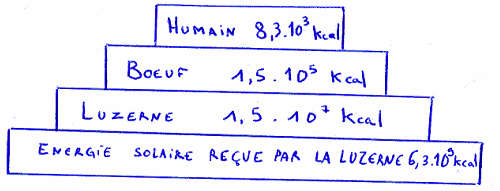 HUMAIN 8,3.10³ kcal
BOEUF 1,5.10⁵ Kcal
LUZERNE 1,5.10⁷ Kcal
ENERGIE SOLAIRE REÇUE PAR LA LUZERNE 6,3.10⁹ kcal